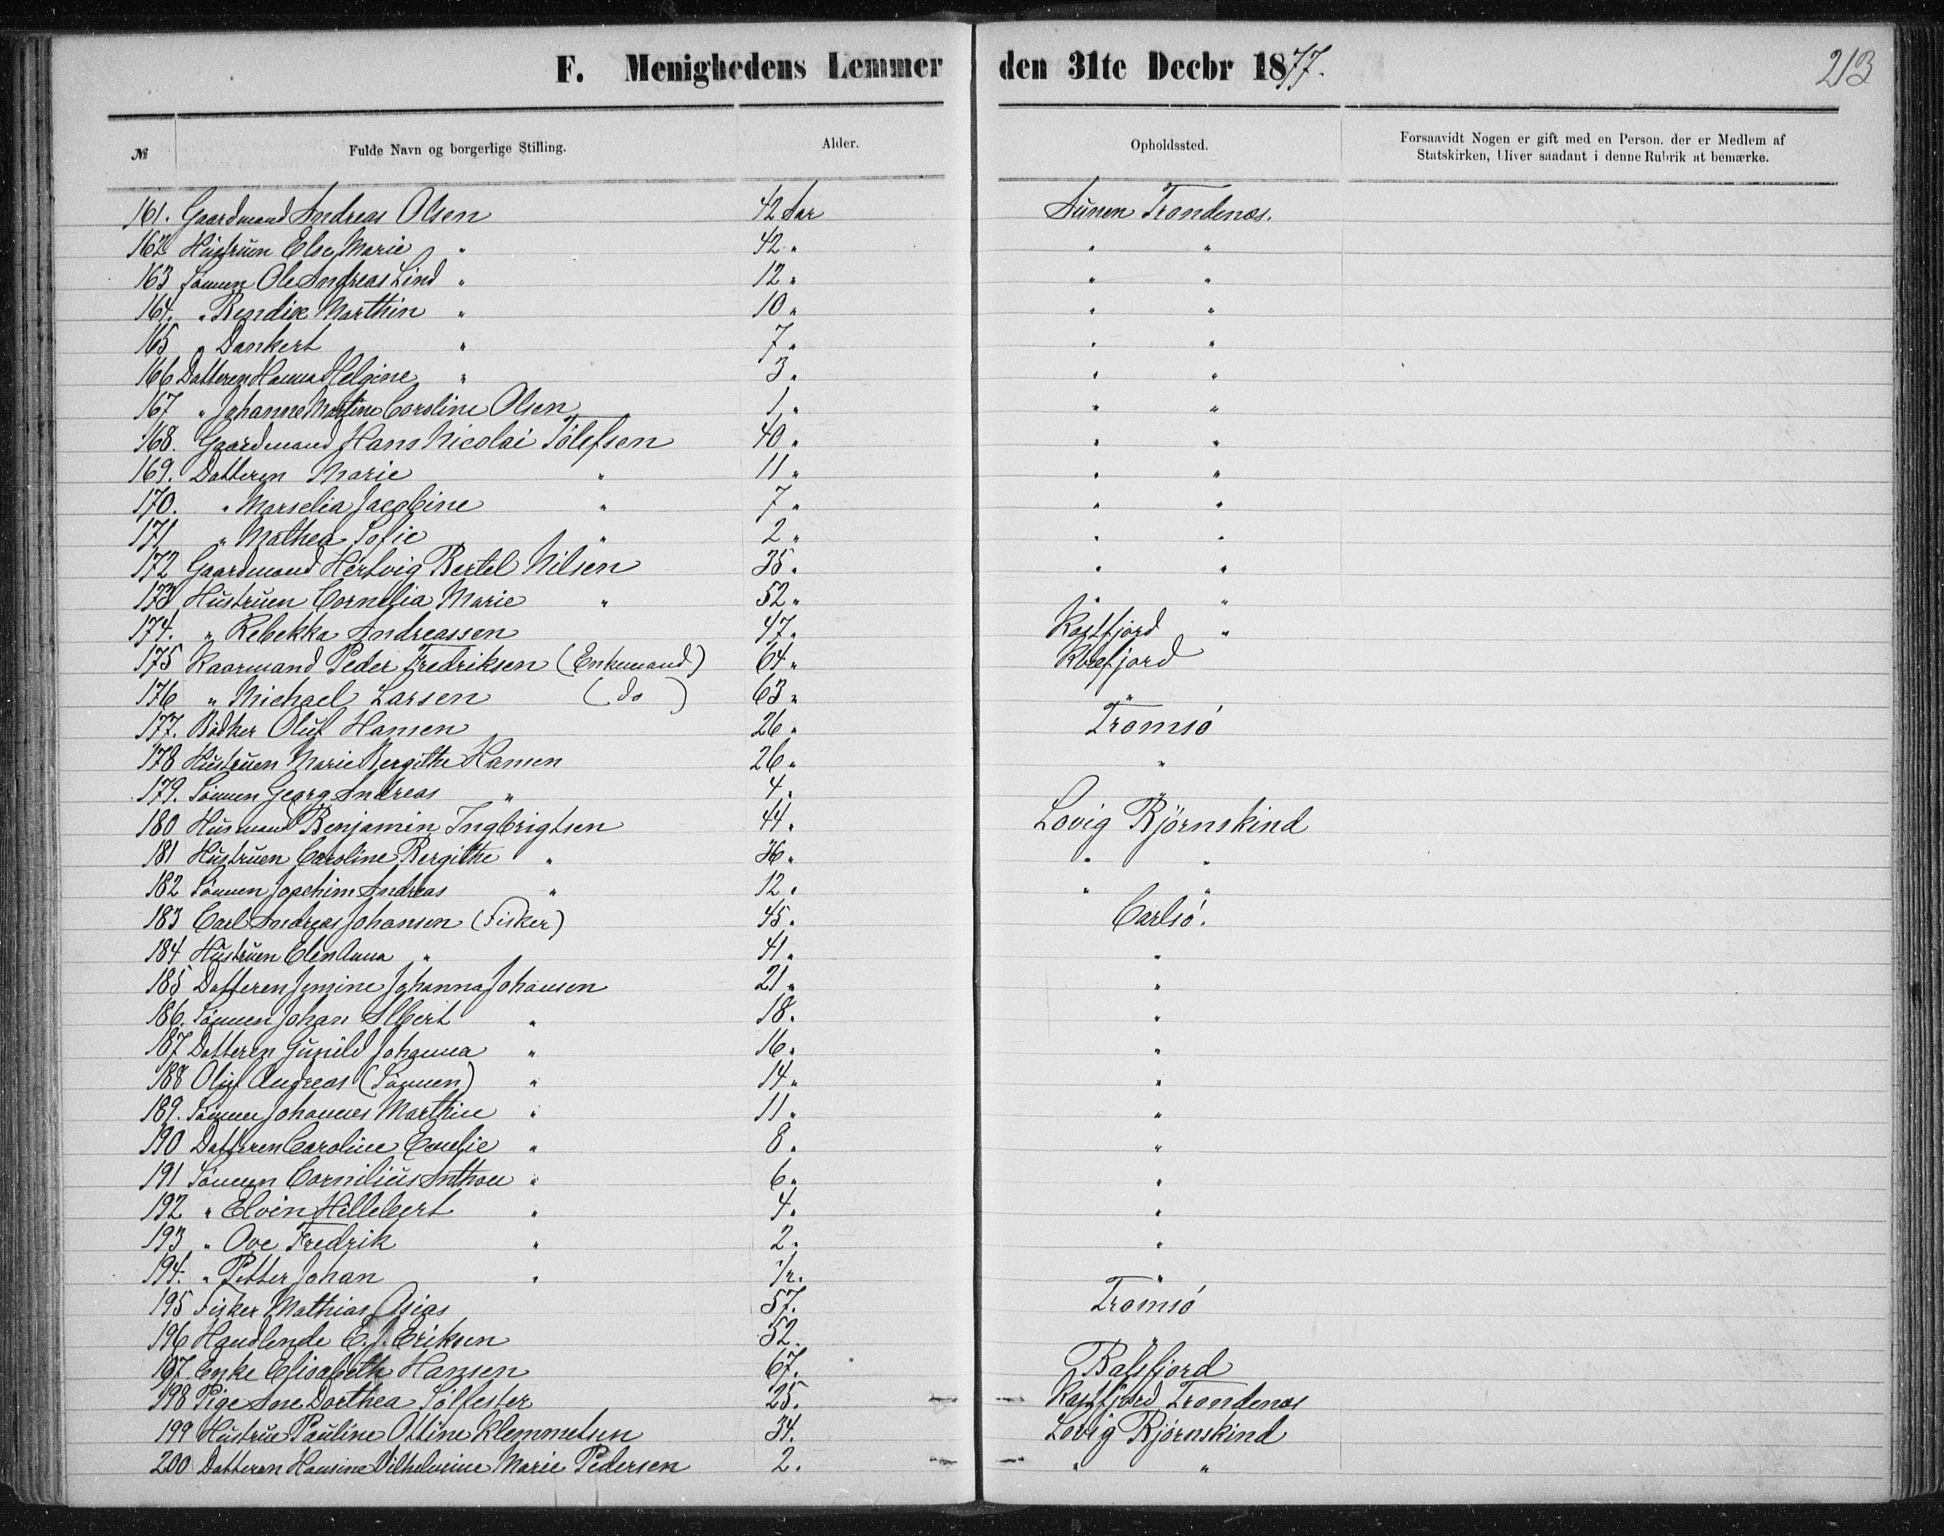 213
F. Menighedens Lemmer den 31te Decbr 1877.
№ Fulde Navn og borgerlige Stilling. Alder. Opholdssted. Forsaavidt Nogen er gift med en Person, der er Medlem af
Statskirken, bliver saadant i denne Rubrik at bemærke.
161. Gaardmand Andreas Olsen 42 Aar Aunen Trondenæs.
162 Hustruen Else Marie " 42 " " "
163 Sønnen Ole Andreas Lind " 12 " " "
164. " Bendix Marthin " 10 " " "
165 " Dankert " 7 " " "
166 Datteren Hanna Helgine " 3 " " "
167 " Johanne Martine Caroline Olsen 1 " " "
168. Gaardmand Hans Nicolai Tølefsen 40 " " "
169. Datteren Marie " 11 " " "
170. " Marselia Jacobine " 7 " " "
171 " Mathea Sofie " 2 " " "
172 Gaardmand Hertvig Bertel Nilsen 35 " " "
173 Hustruen Cornelia Marie " 52 " " "
174. " Rebekka Andreassen 47 " Kastfjord "
175 Kaarmand Peder Fredriksen (Enkemand) 64 " Kvæfjord
176 " Michael Larsen (do) 63 " "
177. Bødker Oluf Hansen 26 " Tromsø
178 Hustruen Marie Bergithe Hansen 26 " "
179. Sønnen Georg Andreas " 4 " "
180 Husmand Benjamin Ingbrigtsen 44 " Lovig Bjørnskind
181 Hustruen Caroline Bergithe " 36 " " "
182 Sønnen Joachim Andreas " 12 " " "
183 Carl Andreas Johansen (Fisker) 45 " Carlsø.
184 Hustruen Elen Anna " 41 " "
185 Datteren Jensine Johanna Johansen 21 " "
186. Sønnen Johan Albert " 18 " "
187 Datteren Gunild Johanna " 16 " "
188 Oluf Andreas (Sønnen) " 14 " "
189. Sønnen Johannes Marthin " 11 " "
190 Datteren Caroline Emelie " 8 " "
191 Sønnen Cornilius Anthon " 6 " "
192 " Elvin Hillebert " 4 " "
193 " Ove Fredrik " 2 " "
194. " Petter Johan " 1/2 " "
195 Fisker Mathias Asias 57 " Tromsø
196 Handlende E. J. Eriksen 52 " "
197. Enke Elisabeth Hansen 67 " Balsfjord
198 Pige Ane Dorthea Sølfester 25 " Kastfjord Trondenæs
199 Hustrue Pauline Ottine Klemmetsen 34. Lovig Bjørnskind
200 Datteren Hansine Vilhelmine Marie Pedersen 2. " "